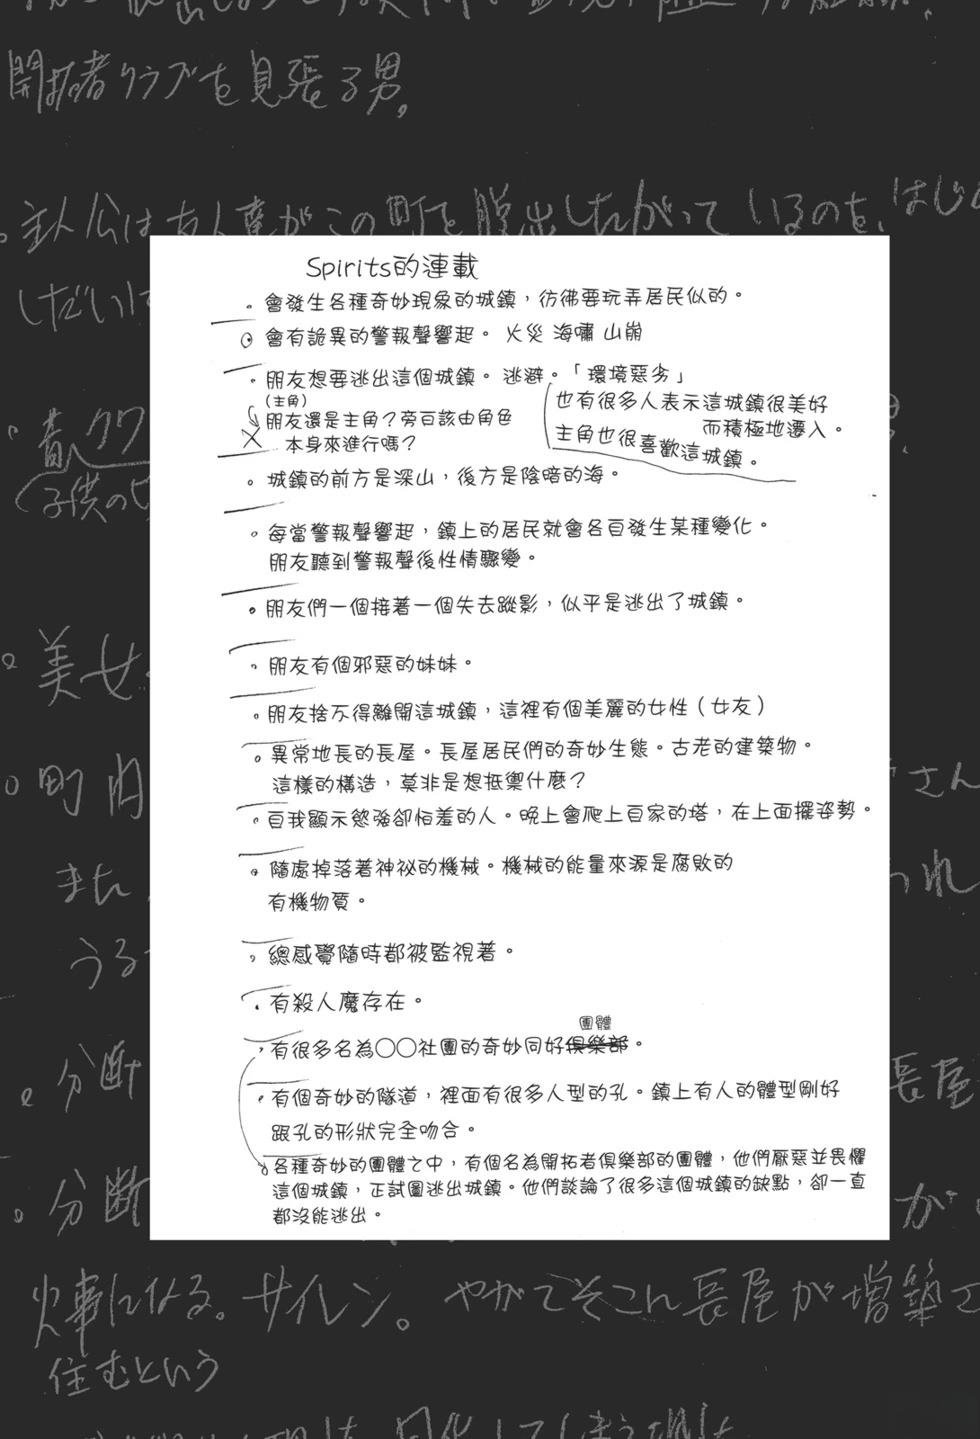 開拓者クラブを見張る男。
。主人公は友人達がこの町を脱出したがっているのを、はじ
しだいに
Spirits的連載
。會發生各種奇妙現象的城鎮,彷彿要玩弄居民似的。
會有詭異的警報聲響起。 火災 海嘯 山崩
。朋友想要逃出這個城鎮。逃避。「環境惡劣」
(主角)
朋友還是主角?旁白該由角色
本身來進行嗎?
也有很多人表示這城鎮很美好
而積極地遷入。
主角也很喜歡這城鎮。
。城鎮的前方是深山,後方是陰暗的海。
。每當警報聲響起,鎮上的居民就會各自發生某種變化。
朋友聽到警報聲後性情驟變。
。朋友們一個接著一個失去蹤影,似乎是逃出了城鎮。
。朋友有個邪惡的妹妹。
。朋友捨不得離開這城鎮,這裡有個美麗的女性(女友)
。異常地長的長屋。長屋居民們的奇妙生態。古老的建築物。
這樣的構造,莫非是想抵禦什麼?
。自我顯示慾強卻怕羞的人。晚上會爬上自家的塔,在上面擺姿勢。
。隨處掉落著神祕的機械。機械的能量來源是腐敗的
有機物質。
。總感覺隨時都被監視著。
。有殺人魔存在。
團體
。有很多名為〇〇社團的奇妙同好俱樂部。
。有個奇妙的隧道,裡面有很多人型的孔。鎮上有人的體型剛好
跟孔的形狀完全吻合。
。各種奇妙的團體之中,有個名為開拓者俱樂部的團體,他們厭惡並畏懼
這個城鎮,正試圖逃出城鎮。他們談論了很多這個城鎮的缺點,卻一直
都沒能逃出。
(子供の
。美女
。町内
さん
また
われ
うる
。分断
長屋
。分断
が
火事になる。サイレン。やがてそこに長屋が増築さ
住むという